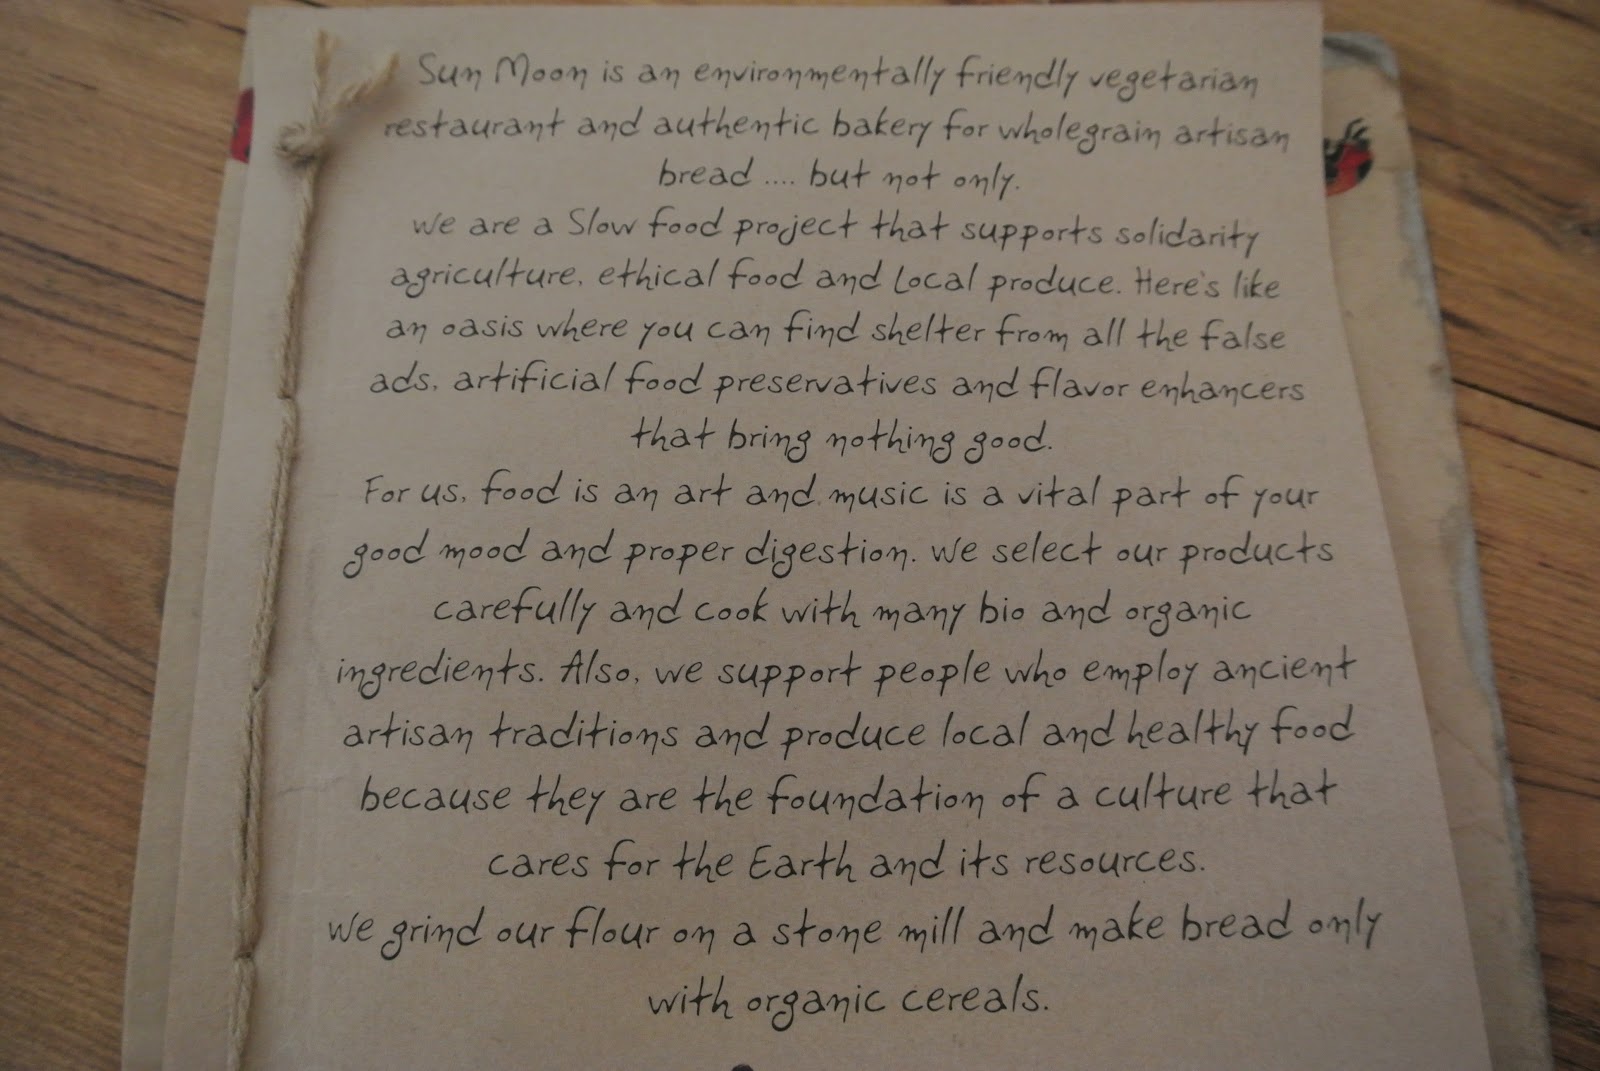 Sun Moon is an environmentally friendly vegetarian
restaurant and authentic bakery for wholegrain artisan
bread .... but not only.
We are a Slow food project that supports solidarity
agriculture, ethical food and local produce. Here's like
an oasis where you can find shelter from all the false
ads, artificial food preservatives and flavor enhancers
that bring nothing good.
For us, food is an art and music is a vital part of your
good mood and proper digestion. We select our products
carefully and cook with many bio and organic
ingredients. Also, we support people who employ ancient
artisan traditions and produce local and healthy food
because they are the foundation of a culture that
cares for the Earth and its resources.
We grind our flour on a stone mill and make bread only
with organic cereals.